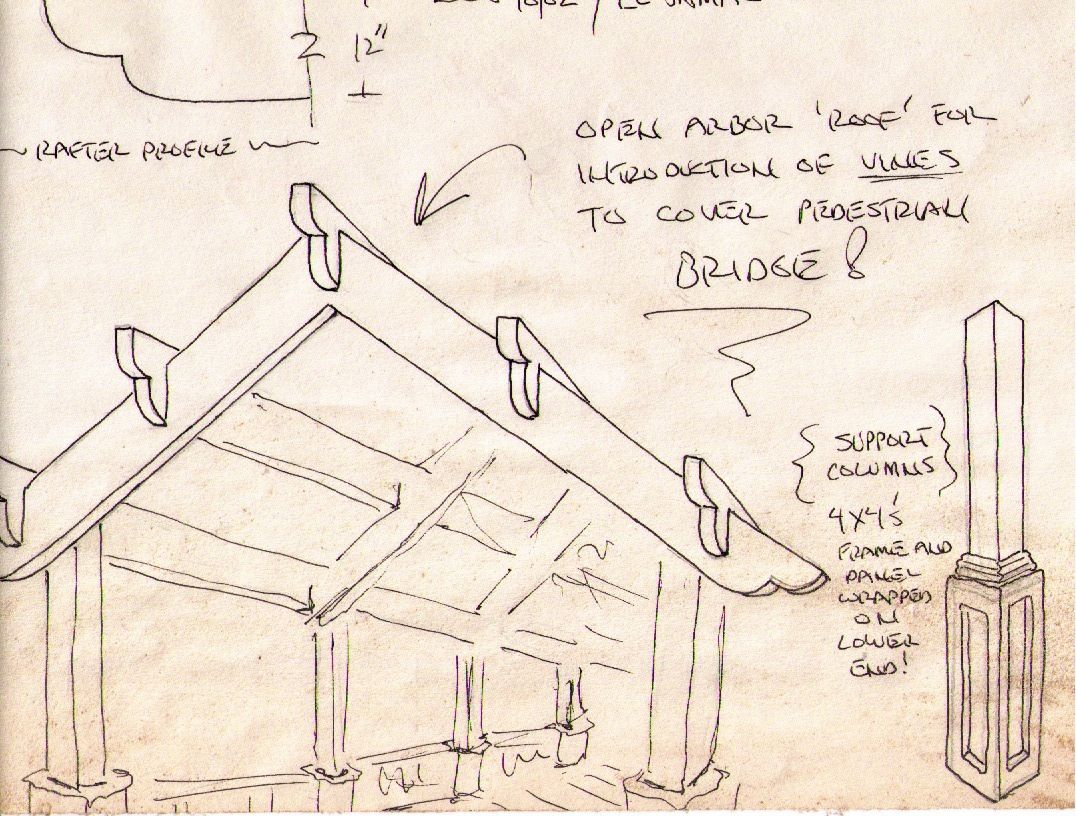 12"
RAFTER PROFILE
OPEN ARBOR 'ROOF' FOR
INTRODUKTION OF VINES
TO COVER PEDESTRIAN
BRIDGE!
SUPPORT
COLUMNS
4X4'S
FRAME AND
PANEL
WRAPPED
ON
LOWER
END!